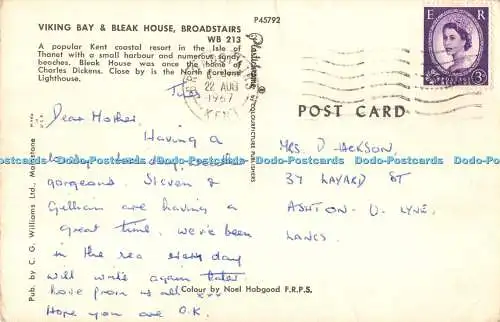 VIKING BAY & BLEAK HOUSE, BROADSTAIRS
WB 213
A popular Kent coastal resort in the Isle of
Thanet with a small harbour and numerous sandy
beaches. Bleak House was once the home of
Charles Dickens. Close by is the North Foreland
Lighthouse.
P45792
Tues
22 AUG
1967
KENT
E R
3D
POST CARD
Plastichrome ®
BY COLOURPICTURE PUBLISHERS
Pub. by C. G. Williams Ltd., Manstone
Dear Mother,
Having a
lovely holiday, weather
gorgeous. Steven &
Gillian are having a
great time. We've been
in the sea every day
will write again later
love from us all xxx
Hope you are O.K.
MRS. D. JACKSON,
37 LAYARD ST
ASHTON-U-LYNE,
LANCS.
Colour by Noel Habgood F.R.P.S.
Dodo-Postcards Dodo-Postcards Dodo-Postcards Dodo-Postcards Dodo-Postcards Dodo-Postcards